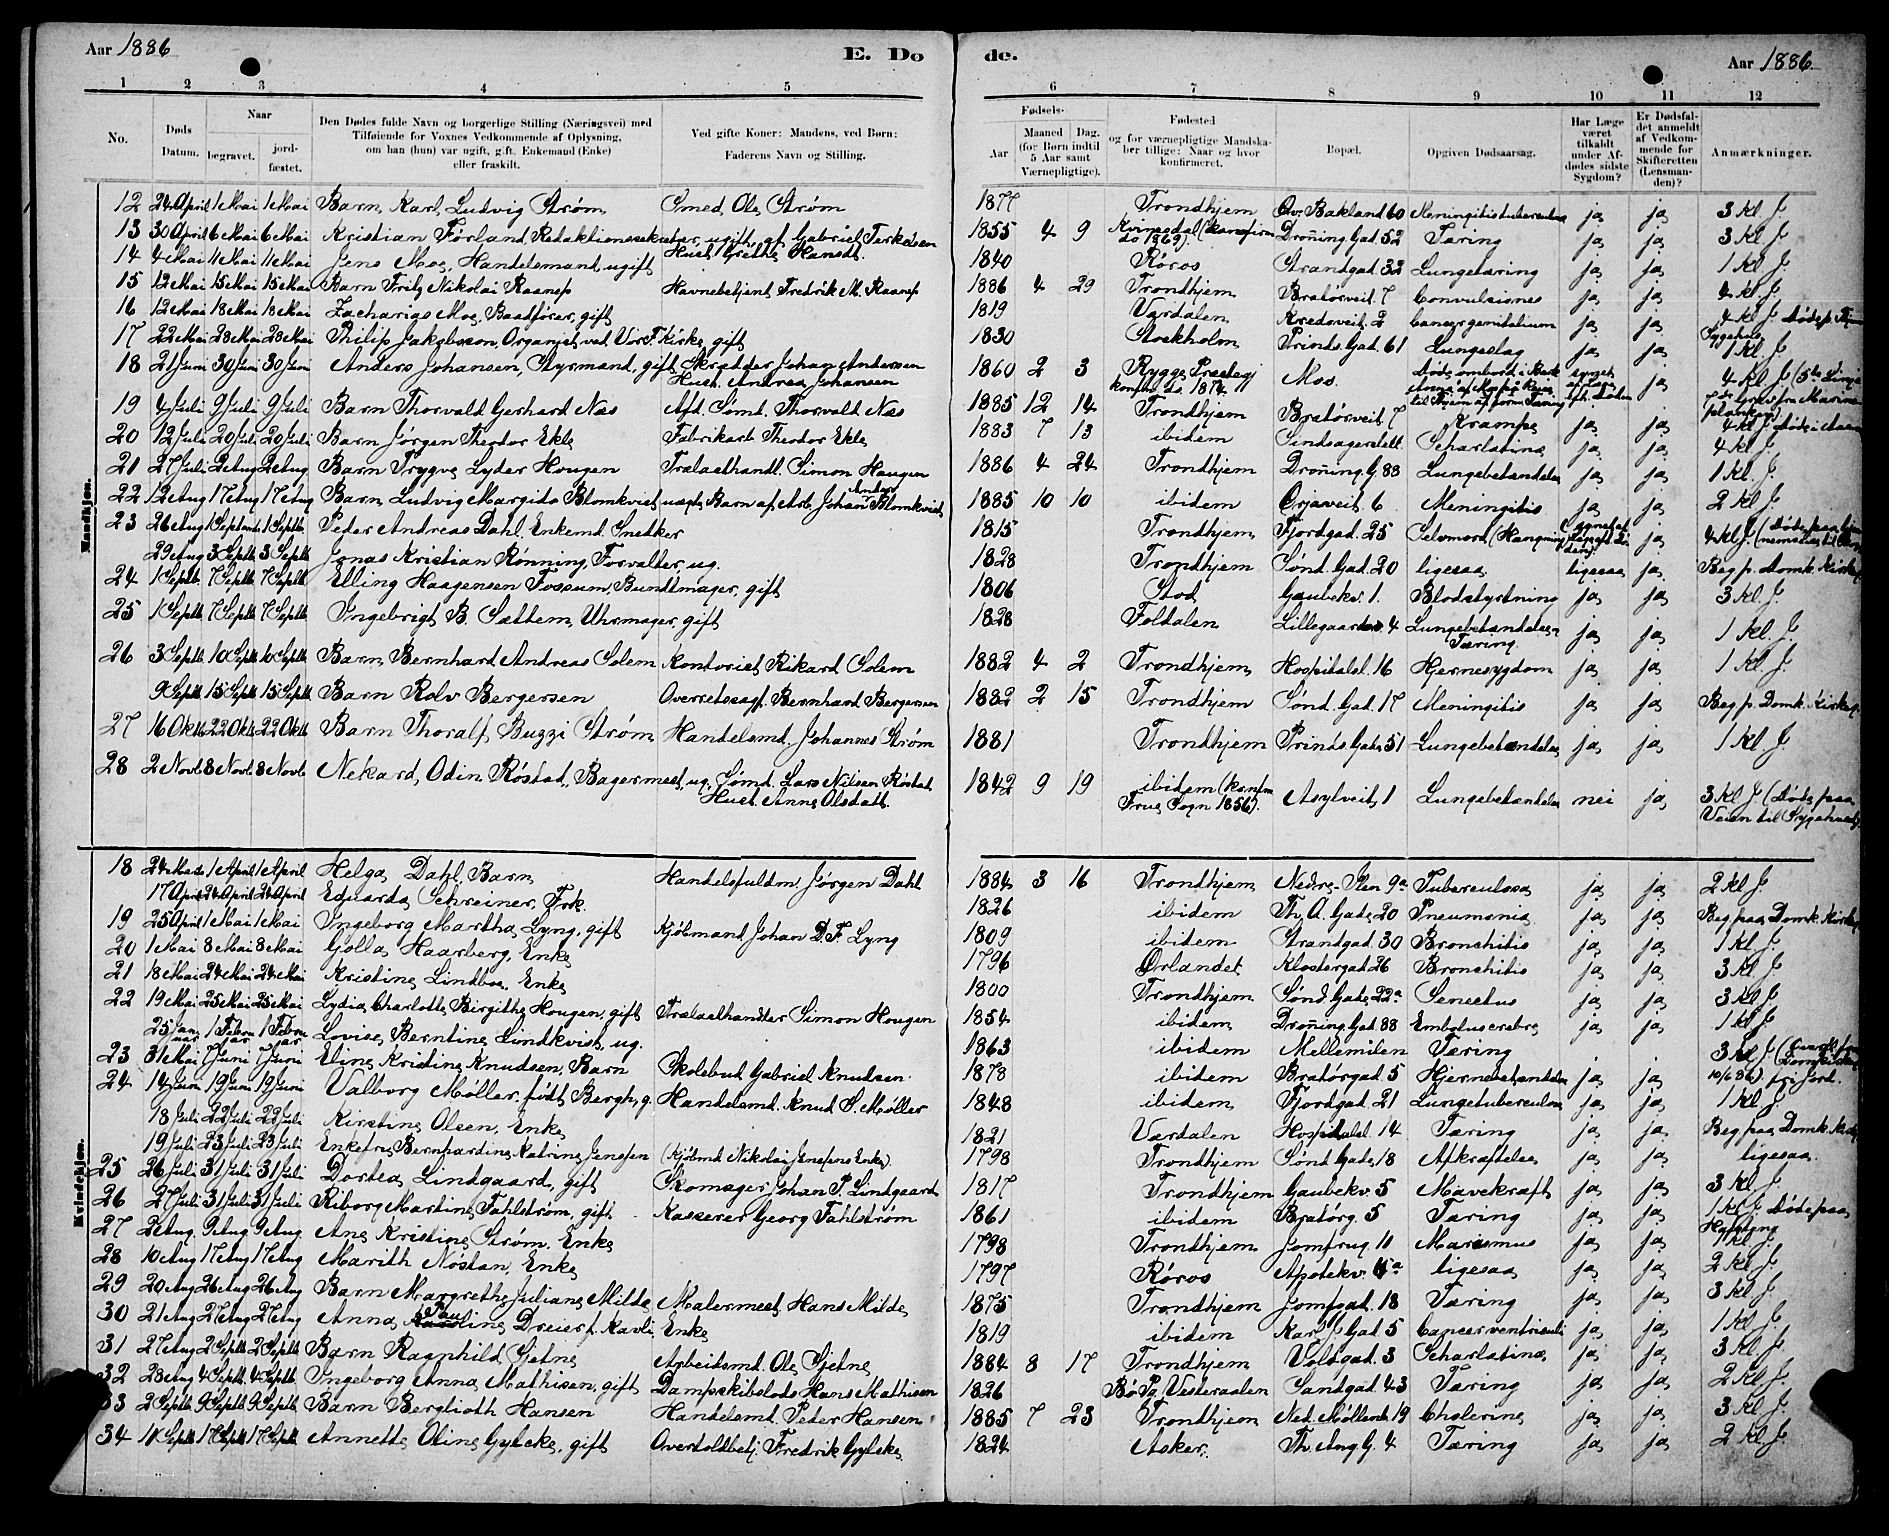 Aar 1886
E. Do
de.
Aar 1886.
1 2 3 4 5 6 7 8 9 10 11 12
No.
Døds Datum.
Naar
begravet.
jordfæstet.
Den Dødes fulde Navn og borgerlige Stilling (Næringsvei) med
Tilføiende for Voxnes Vedkommende af Oplysning,
om han (hun) var ugift, gift, Enkemand (Enke)
eller fraskilt.
Ved gifte Koner: Mandens, ved Børn:
Faderens Navn og Stilling.
Fødsels-
Aar
Maaned (for Børn indtil 5 Aar samt Værnepligtige).
Dag.
Fødested
og for værnepligtige Mandskaber tillige: Naar og hvor konfirmeret.
Bopæl.
Opgiven Dødsaarsag.
Har Læge været tilkaldt under Afdødes sidste Sygdom?
Er Dødsfaldet anmeldt af Vedkommende for Skifteretten (Lensmanden)?
Anmærkninger.
Mandkjøn.
12 24 April 1 Mai 1 Mai Barn Karl Ludvig Strøm Smed Ole Strøm 1877 Trondhjem Øv. Bakland 60 Meningitis tuberculosa ja ja 3 Kl. J.
13 30 April 6 Mai 6 Mai Kristian Førland, Redaktionssekretær, ugift, af Gabriel Terkelsen 1855 4 9 Kvinesdal (konfirm. do 1869). Dronning. Gad. 52 Tæring ja ja 3 Kl. J.
14 4 Mai 11 Mai 11 Mai Jens Moe, Handelsmand, ugift Hust. Grethe Hansdt. 1840 Røros Strandgad. 32 Lungetæring ja ja 1 Kl. J.
15 12 Mai 15 Mai 15 Mai Barn Fritz Nikolai Raanes Havnebetjent Fredrik M. Raanes 1886 4 29 Trondhjem Bratørveit 7 Convulsiones ja ja 4 Kl. J.
16 12 Mai 18 Mai 18 Mai Zacharias Moe, Baadfører, gift 1819 Værdalen Kredoveit. 2 Cancer genitalium ja ja 4 Kl. J. Døde p. Sygehus
17 22 Mai 28 Mai 28 Mai Philip Jakobsson, Organist ved Vor F. Kirke, gift 1830 Stockholm Prinds. Gad. 61 Lungeslag ja ja 1 Kl. J.
18 21 Juni 30 Juni 30 Juni Anders Johansen, Styrmand, gift Skrædder Johan Andersen
Hust. Andrea Johansen 1860 2 3 Rygge Præstegj konfirm. do. 1874. Mos. Døde ombord i Bark Anna af Mos paa Reise til Thjem af form. Tæring ja 4 Kl. J.
19 4 Juli 9 Juli 9 Juli Barn Thorvald Gerhard Næs Afd. Sømd. Thorvald Næs 1885 12 14 Trondhjem Bratørveit 7 Krampe ja ja 4 Kl. J.
20 12 Juli 20 Juli 20 Juli Barn Jørgen Theodor Ekle Fabrikarb. Theodor Ekle 1883 7 13 ibidem Sindsagerslett. Scharlatina ja ja 4 Kl. J.
21 27 Juli 2 Aug 2 Aug Barn Trygve Lyder Hougen Trælasthandl. Simon Hougen 1886 4 24 Trondhjem Dronning. G. 88 Lungebetændelse ja ja 1 Kl. J.
22 12 Aug 17 Aug 17 Aug Barn Ludvig Margido Blomkvist uægte Barn af Arb. Johan Anders Blomkvist 1885 10 10 ibidem Ørjaveit. 6 Meningitis ja ja 2 Kl. J.
23 26 Aug 1 Septemb 1 Septb. Peder Andreas Dahl, Enkemd. Snedker 1815 Trondhjem Fjordgad. 25 Selvmord (Hængning) ja 4 Kl. J.
29 Aug 3 Septb 3 Septb Jonas Kristian Rønning, Forvalter, ug. 1828 Trondhjem Sønd. Gad. 20 ligesaa ligesaa ja Beg. p. Domk. Kirkeg.
24 1 Septb. 7 Septb 7 Septb Elling Haagensen Fossum, Bundtmager, gift 1806 Stod Gaubekv. 1. Blodstyrtning ja ja 3 Kl. J.
25 1 Septb 7 Septb 7 Septb Ingebrigt B. Sættem, Uhrmager, gift 1828 Foldalen Lillegaardsb. 4 Lungebetændelse, Tæring ja ja 1 Kl. J.
26 3 Septb 10 Septb 10 Septb Barn Bernhard Andreas Solem Kontorist Rikard Solem 1882 4 2 Trondhjem Hospitalsl. 16 Hjernesygdom ja ja 1 Kl. J.
9 Septb 15 Septb 15 Septb Barn Rolv Bergersen Overretssagf. Bernhard Bergersen 1882 2 15 Trondhjem Sønd. Gad. 17 Meningitis ja ja Beg. p. Domk. Kirkeg.
27 16 Oktb 22 Oktb 22 Oktb Barn Thoralf Buzzi Strøm Handelsmd. Johannes Strøm 1881 Trondhjem Prinds Gade 51 Lungebetændelse ja ja 1 Kl. J.
28 2 Novb 8 Novb 8 Novb Nekard Odin Røstad, Bagermest, ug. Sømd. Lars Nilsen Røstad
Hust. Anne Olsdatt. 1842 9 19 ibidem (konfirm Frue Sogn 1856). Asylveit. 1 Lungebetændelse nei ja 3 Kl. J. (Døde paa Veien til Sygehuset).
Kvindekjøn.
18 24 Marts 1 April 1 April Helga Dahl, Barn Handelsfuldm. Jørgen Dahl 1884 3 16 Trondhjem Nedre Ilen 9a Tuberculosa ja ja 2 Kl. J.
17 April 24 April 24 April Edvarda Schreiner, Frk. 1826 ibidem Th. A. Gade 20 Pneumonia ja ja Beg paa Domk. Kirkeg.
19 25 April 1 Mai 1 Mai Ingeborg Martha Lyng, gift Kjøbmand Johan D. F. Lyng 1809 ibidem Strandgad. 30 Bronchitis ja ja 1 Kl. J.
20 1 Mai 8 Mai 8 Mai Golla Haarberg, Enke 1796 Ørlandet Klostergad 26 Bronchitis ja ja 3 Kl. J.
21 18 Mai 24 Mai 24 Mai Kristine Lindboe, Enke 1800 Trondhjem Sønd. Gade 22a Senectus ja ja 3 Kl. J.
22 19 Mai 25 Mai 25 Mai Lydia Charlotte Birgithe Hougen, gift Trælasthandler Simon Hougen 1854 ibidem Dronning. Gad 88 Embolus cerebri ja ja 1 Kl. J.
25 Januar 1 Februar 1 Februar Lovise Berntine Lindkvist, ug. 1863 ibidem Mellemilen Tæring 3 Kl. J.
23 31 Mai 7 Juni 7 Juni Eline Kristine Knudsen, Barn Skolebud Gabriel Knudsen 1878 ibidem Bratørgad 5 Hjernebetændelse ja ja 10/6 86).
24 14 Juni 19 Juni 19 Juni Valborg Møller, født Bergh, g. Handelsmd. Knud S. Møller 1848 ibidem Fjordgad. 21 Lungetuberculose ja ja 1 Kl. J.
18 Juli 22 Juli 22 Juli Kirstine Olsen, Enke 1821 Værdalen Hospitalsl. 14 Tæring ja ja Beg paa Domk. Kirkeg
19 Juli 23 Juli 23 Juli Enkefru Bernhardine Katrine Jenssen (Kjøbmd. Nikolai Jenssens Enke). 1798 Trondhjem Sønd Gade 18 Afkræftelse ja ja ligesaa.
25 26 Juli 31 Juli 31 Juli Dortea Lindgaard, gift Skomager Johan P. Lindgaard 1817 Trondhjem Gaubekv. 5 Mavekræft ja ja 3 Kl. J.
26 27 Juli 31 Juli 31 Juli Riborg Martine Fahlstrøm, gift Kasserer Georg Fahlstrøm 1861 ibidem Bratørg. 5 Tæring ja ja 1 Kl. J. Døde paa
27 2 Aug. 9 Aug 9 Aug Ane Kristine Strøm, Enke 1798 Trondhjem Jomfrug. 11 Marasmus ja ja 1 Kl. J.
28 10 Aug 17 Aug 17 Aug Marith Nøstan, Enke 1797 Røros Apotekv. ligesaa ja ja 2 Kl. J.
29 20 Aug 26 Aug 26 Aug Barn Margrethe Juliane Milde Malermest. Hans Milde 1875 Trondhjem Jomfgad. 18 Tæring ja ja 3 Kl. J.
30 21 Aug 27 Aug 27 Aug Anna Pauline Dreier f. Kavli, Enke 1819 ibidem Karl J. Gad 5 Cancer ventriculi ja ja 1 Kl. J.
31 27 Aug 2 Septb 2 Septb Barn Ragnhild Sjetne Arbeidsmd. Ole Sjetne 1884 8 17 Trondhjem Voldgad. 3 Scharlatina ja ja 3 Kl. J.
32 28 Aug 4 Septb. 4 Septb. Ingeborg Anna Mathisen, gift Dampskibslods Hans Mathisen 1826 Bø Pg. Vesteraalen Sandgad 43 Tæring ja ja 2 Kl. J.
33 2 Septb 9 Septb 9 Septb Barn Berglioth Hansen Handelsmd. Peder Hansen 1885 7 23 Trondhjem Ned. Møllenb. 19 Cholerine ja ja 3 Kl. J.
34 11 Septb 17 Septb 17 Septb Annette Oline Gylche, gift Overtoldbetj. Fredrik Gylche 1824 Asker. Th. Ang G. 4 Tæring ja ja 2 Kl. J.